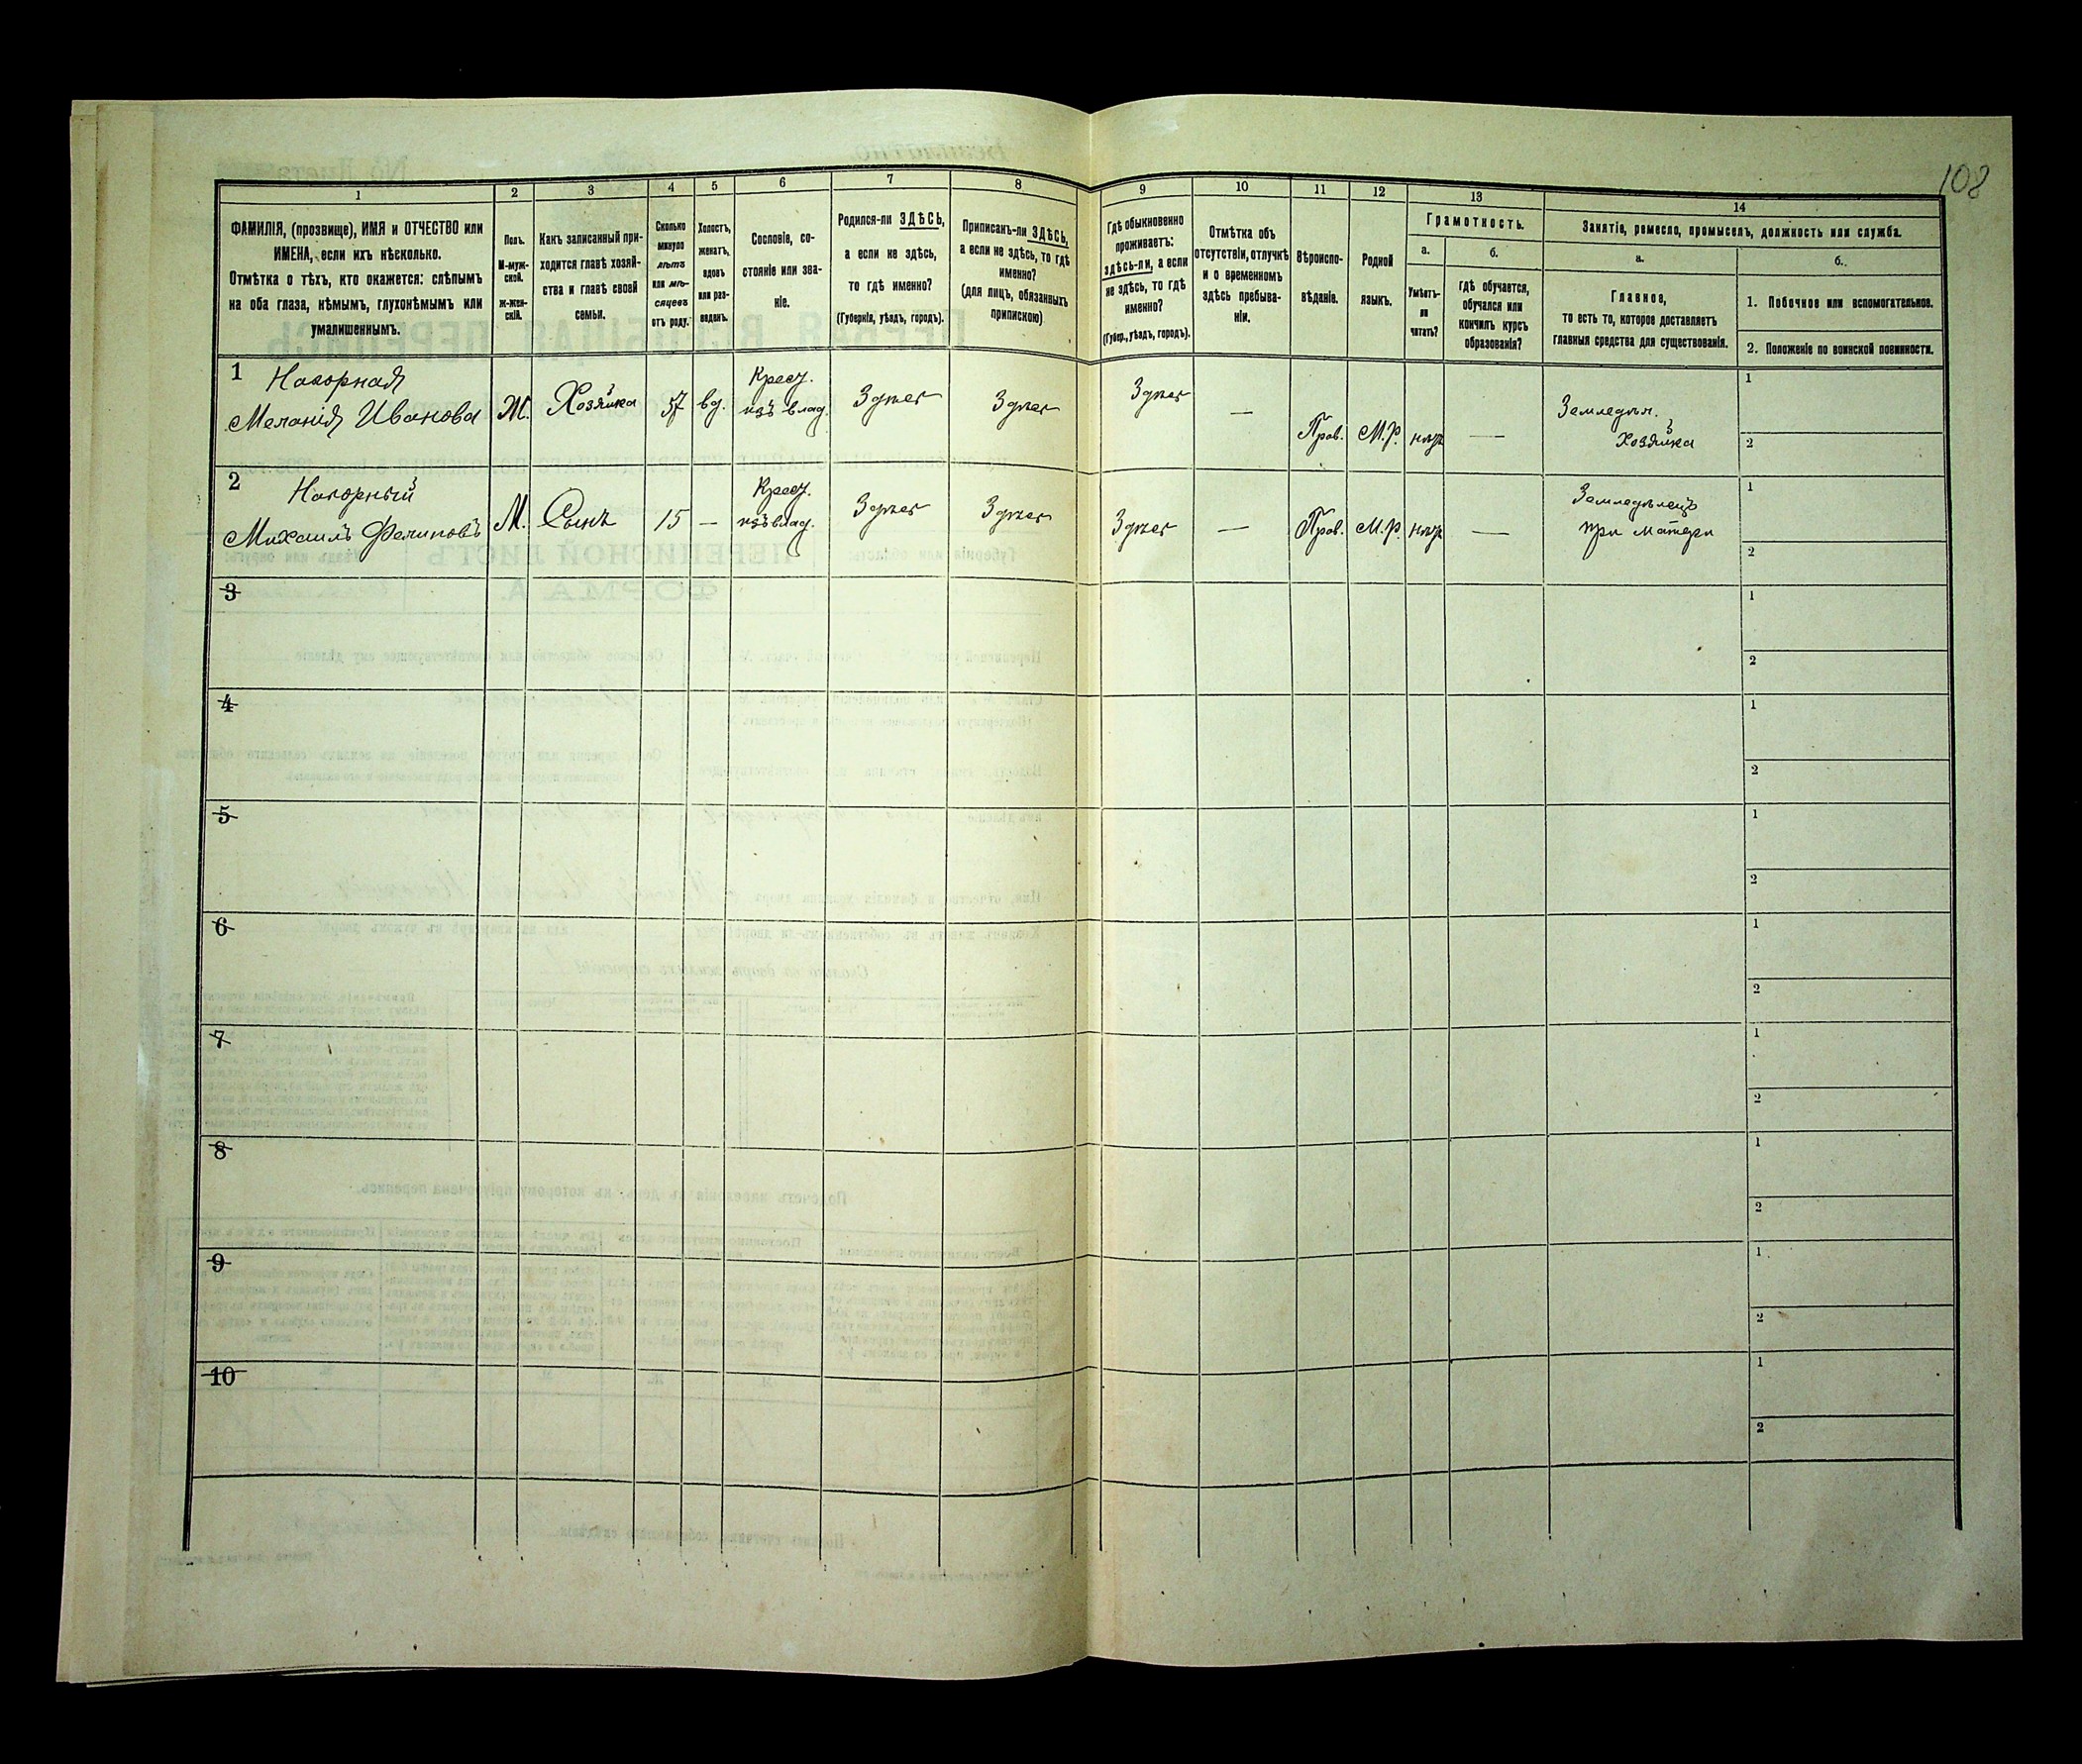 108
1
2
3
4
5
6
7
8
9
10
11
12
13
14
ФАМИЛІЯ, (прозвище), ИМЯ и ОТЧЕСТВО или
ИМЕНА, если ихъ нѣсколько.
Отмѣтка о тѣхъ, кто окажется: слѣпымъ
на оба глаза, нѣмымъ, глухонѣмымъ или
умалишеннымъ.
Полъ.
М-муж-
ской.
Ж-жен-
скій.
Какъ записанный при-
ходится главѣ хозяй-
ства и главѣ своей
семьи.
Сколько
минуло
лѣтъ
или мѣ-
сяцевъ
отъ роду.
Холостъ,
женатъ,
вдовъ
или раз-
веденъ.
Сословіе, со-
стояніе или зва-
ніе.
Родился-ли ЗДѢСЬ,
а если не здѣсь,
то гдѣ именно?
(Губернія, уѣздъ, городъ).
Приписанъ-ли ЗДѢСЬ,
а если не здѣсь, то гдѣ
именно?
(для лицъ, обязанныхъ
припискою)
Гдѣ обыкновенно
проживаетъ:
здѣсь-ли, а если
не здѣсь, то гдѣ
именно?
(Губер., уѣздъ, городъ).
Отмѣтка объ
отсутствіи, отлучкѣ
и о временномъ
здѣсь пребыва-
ніи.
Вѣроиспо-
вѣданіе.
Родной
языкъ.
Грамотность.
а.
Умѣетъ-
ли
читать?
б.
гдѣ обучается,
обучался или
кончилъ курсъ
образованія?
Занятіе, ремесло, промыселъ, должность или служба.
а.
Главное,
то есть то, которое доставляетъ
главныя средства для существованія.
б.
1. Побочное или вспомогательное.
2. Положеніе по воинской повинности.
1 Нагорная
Меланія Иванова
Ж.
Хозяйка
57
вд.
Крест.
изъ влад.
Здѣсь
Здѣсь
Здѣсь
—
Прав.
М.Р.
нѣтъ
—
Земледѣл.
Хозяйка
1
2
2 Нагорный
Михаилъ Филиповъ
М.
Сынъ
15
—
Крест.
изъ влад.
Здѣсь
Здѣсь
Здѣсь
—
Прав.
М.Р.
нѣтъ
—
Земледѣлецъ
при матери
1
2
3
1
2
4
1
2
5
1
2
6
1
2
7
1
2
8
1
2
9
1
2
10
1
2